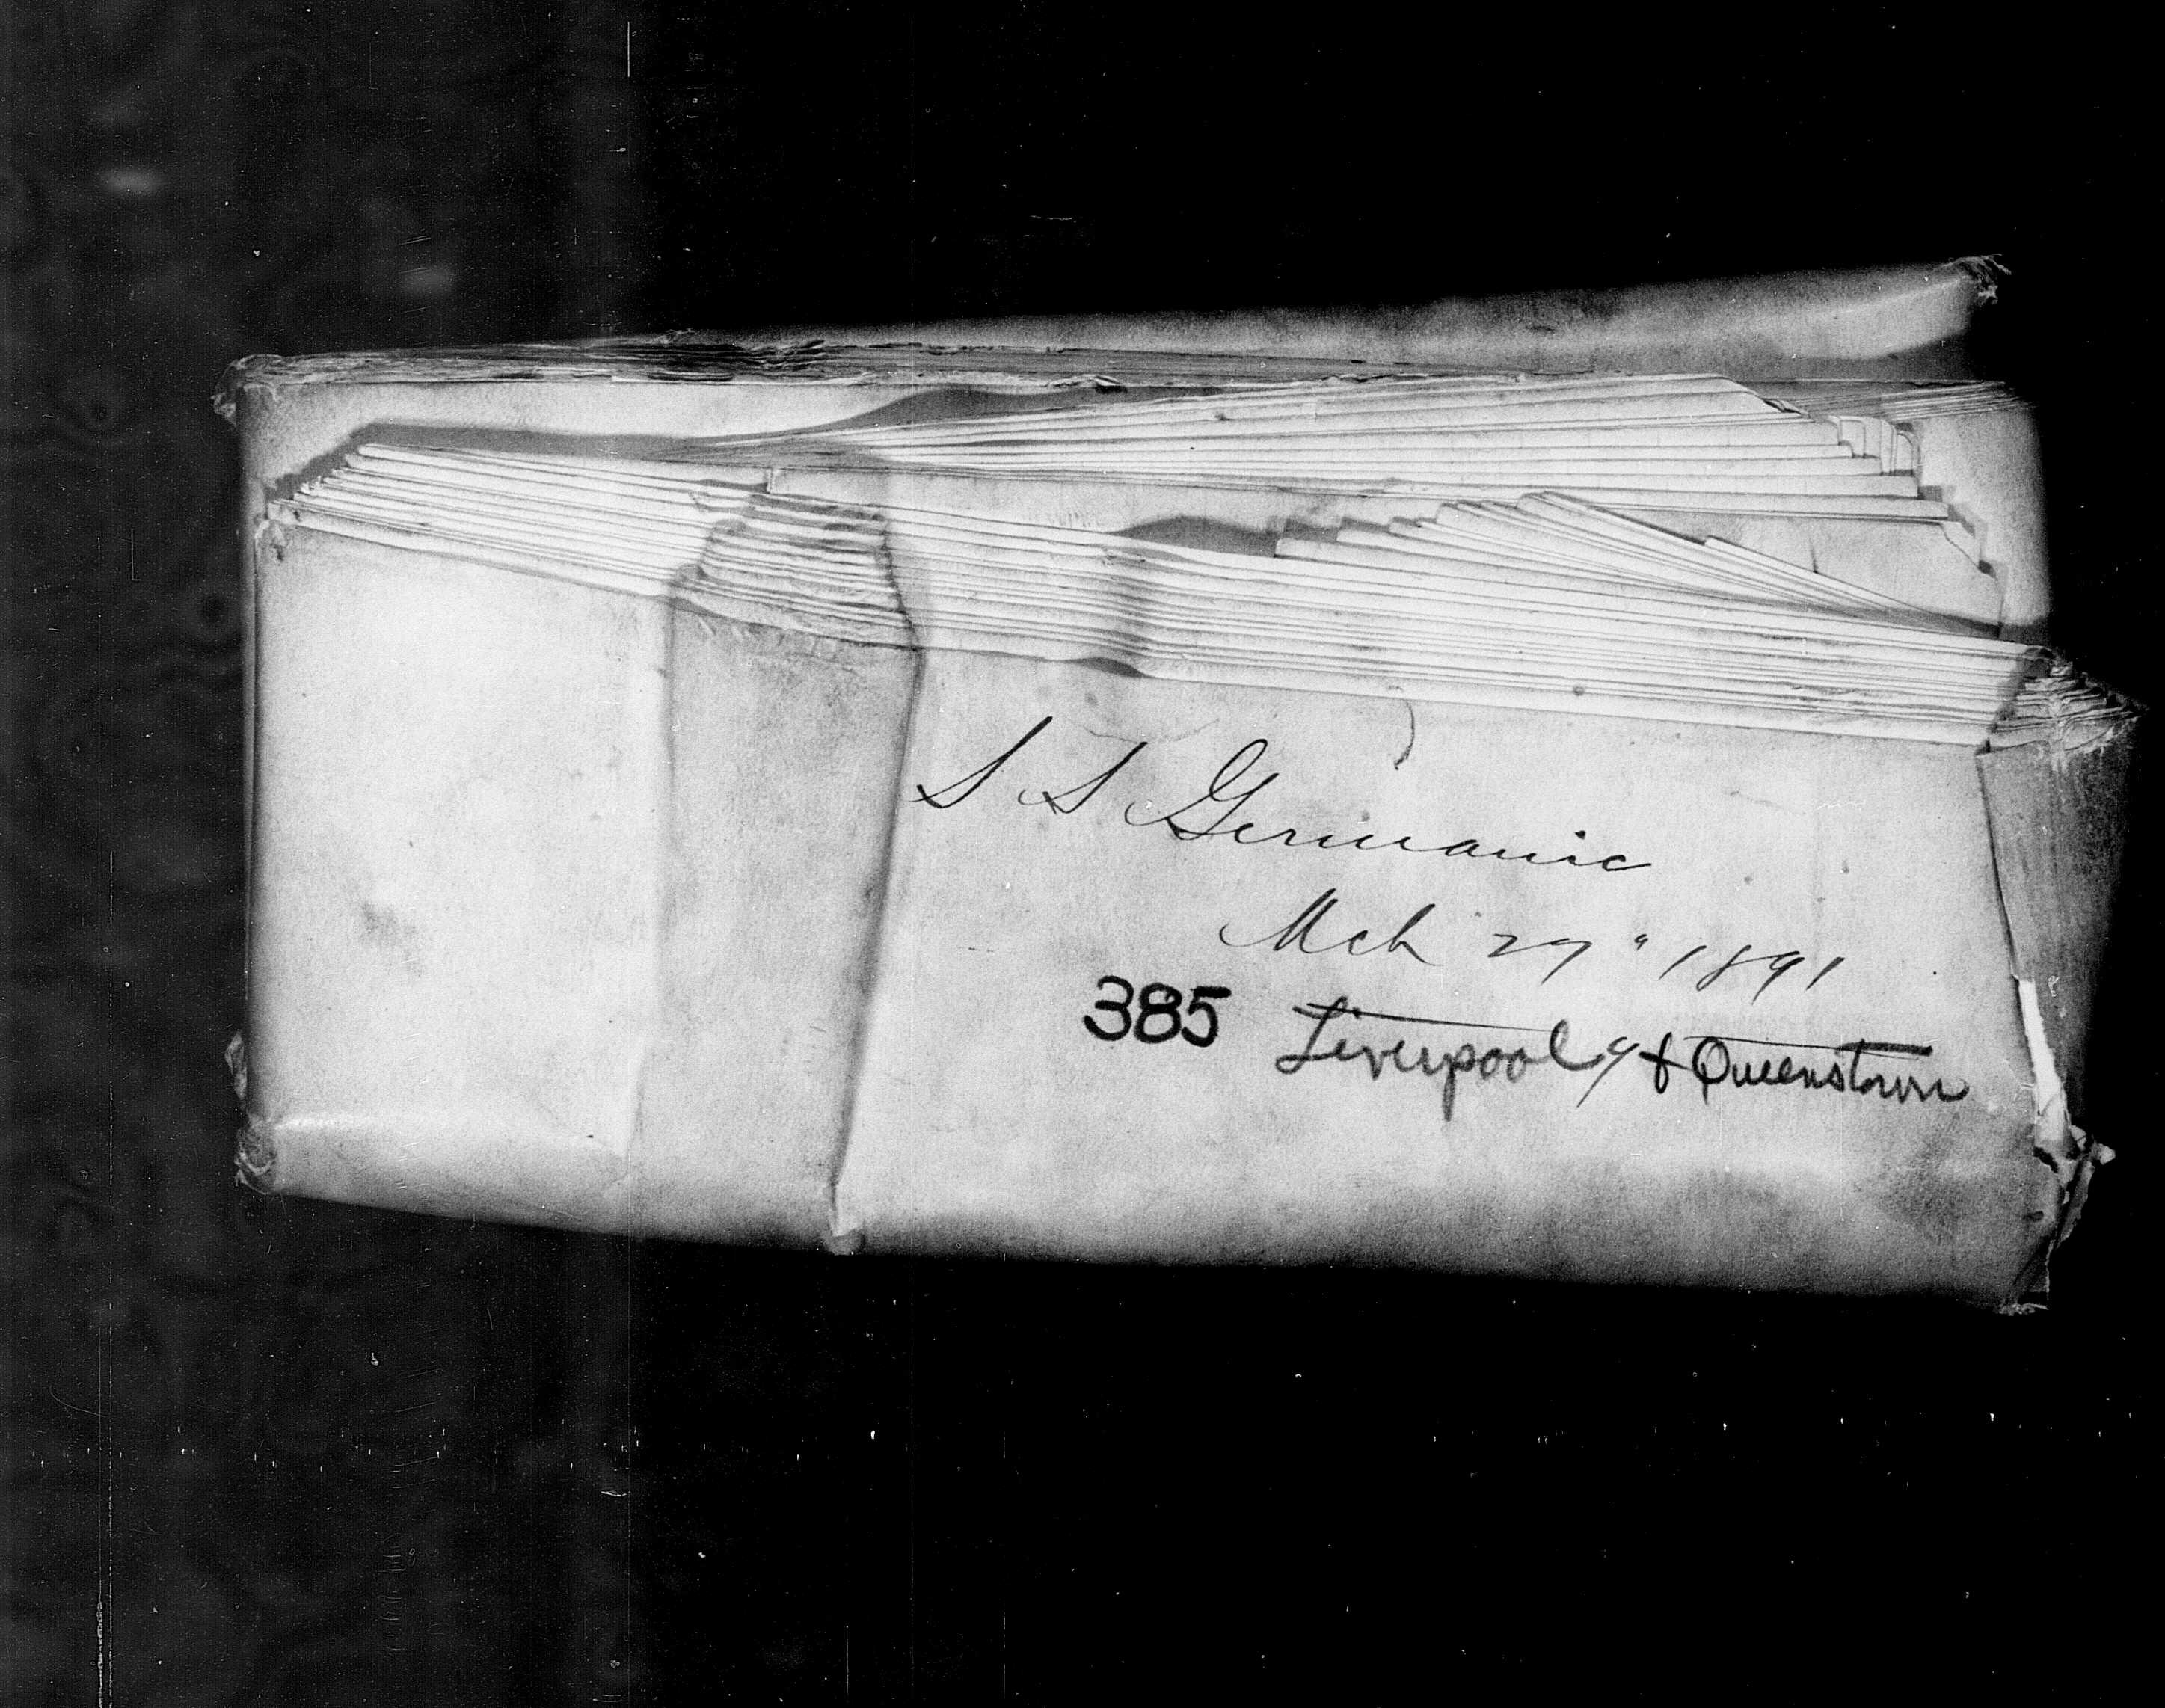 S S Germanic
Mch 27" 1891
385 Liverpool, & Queenstown